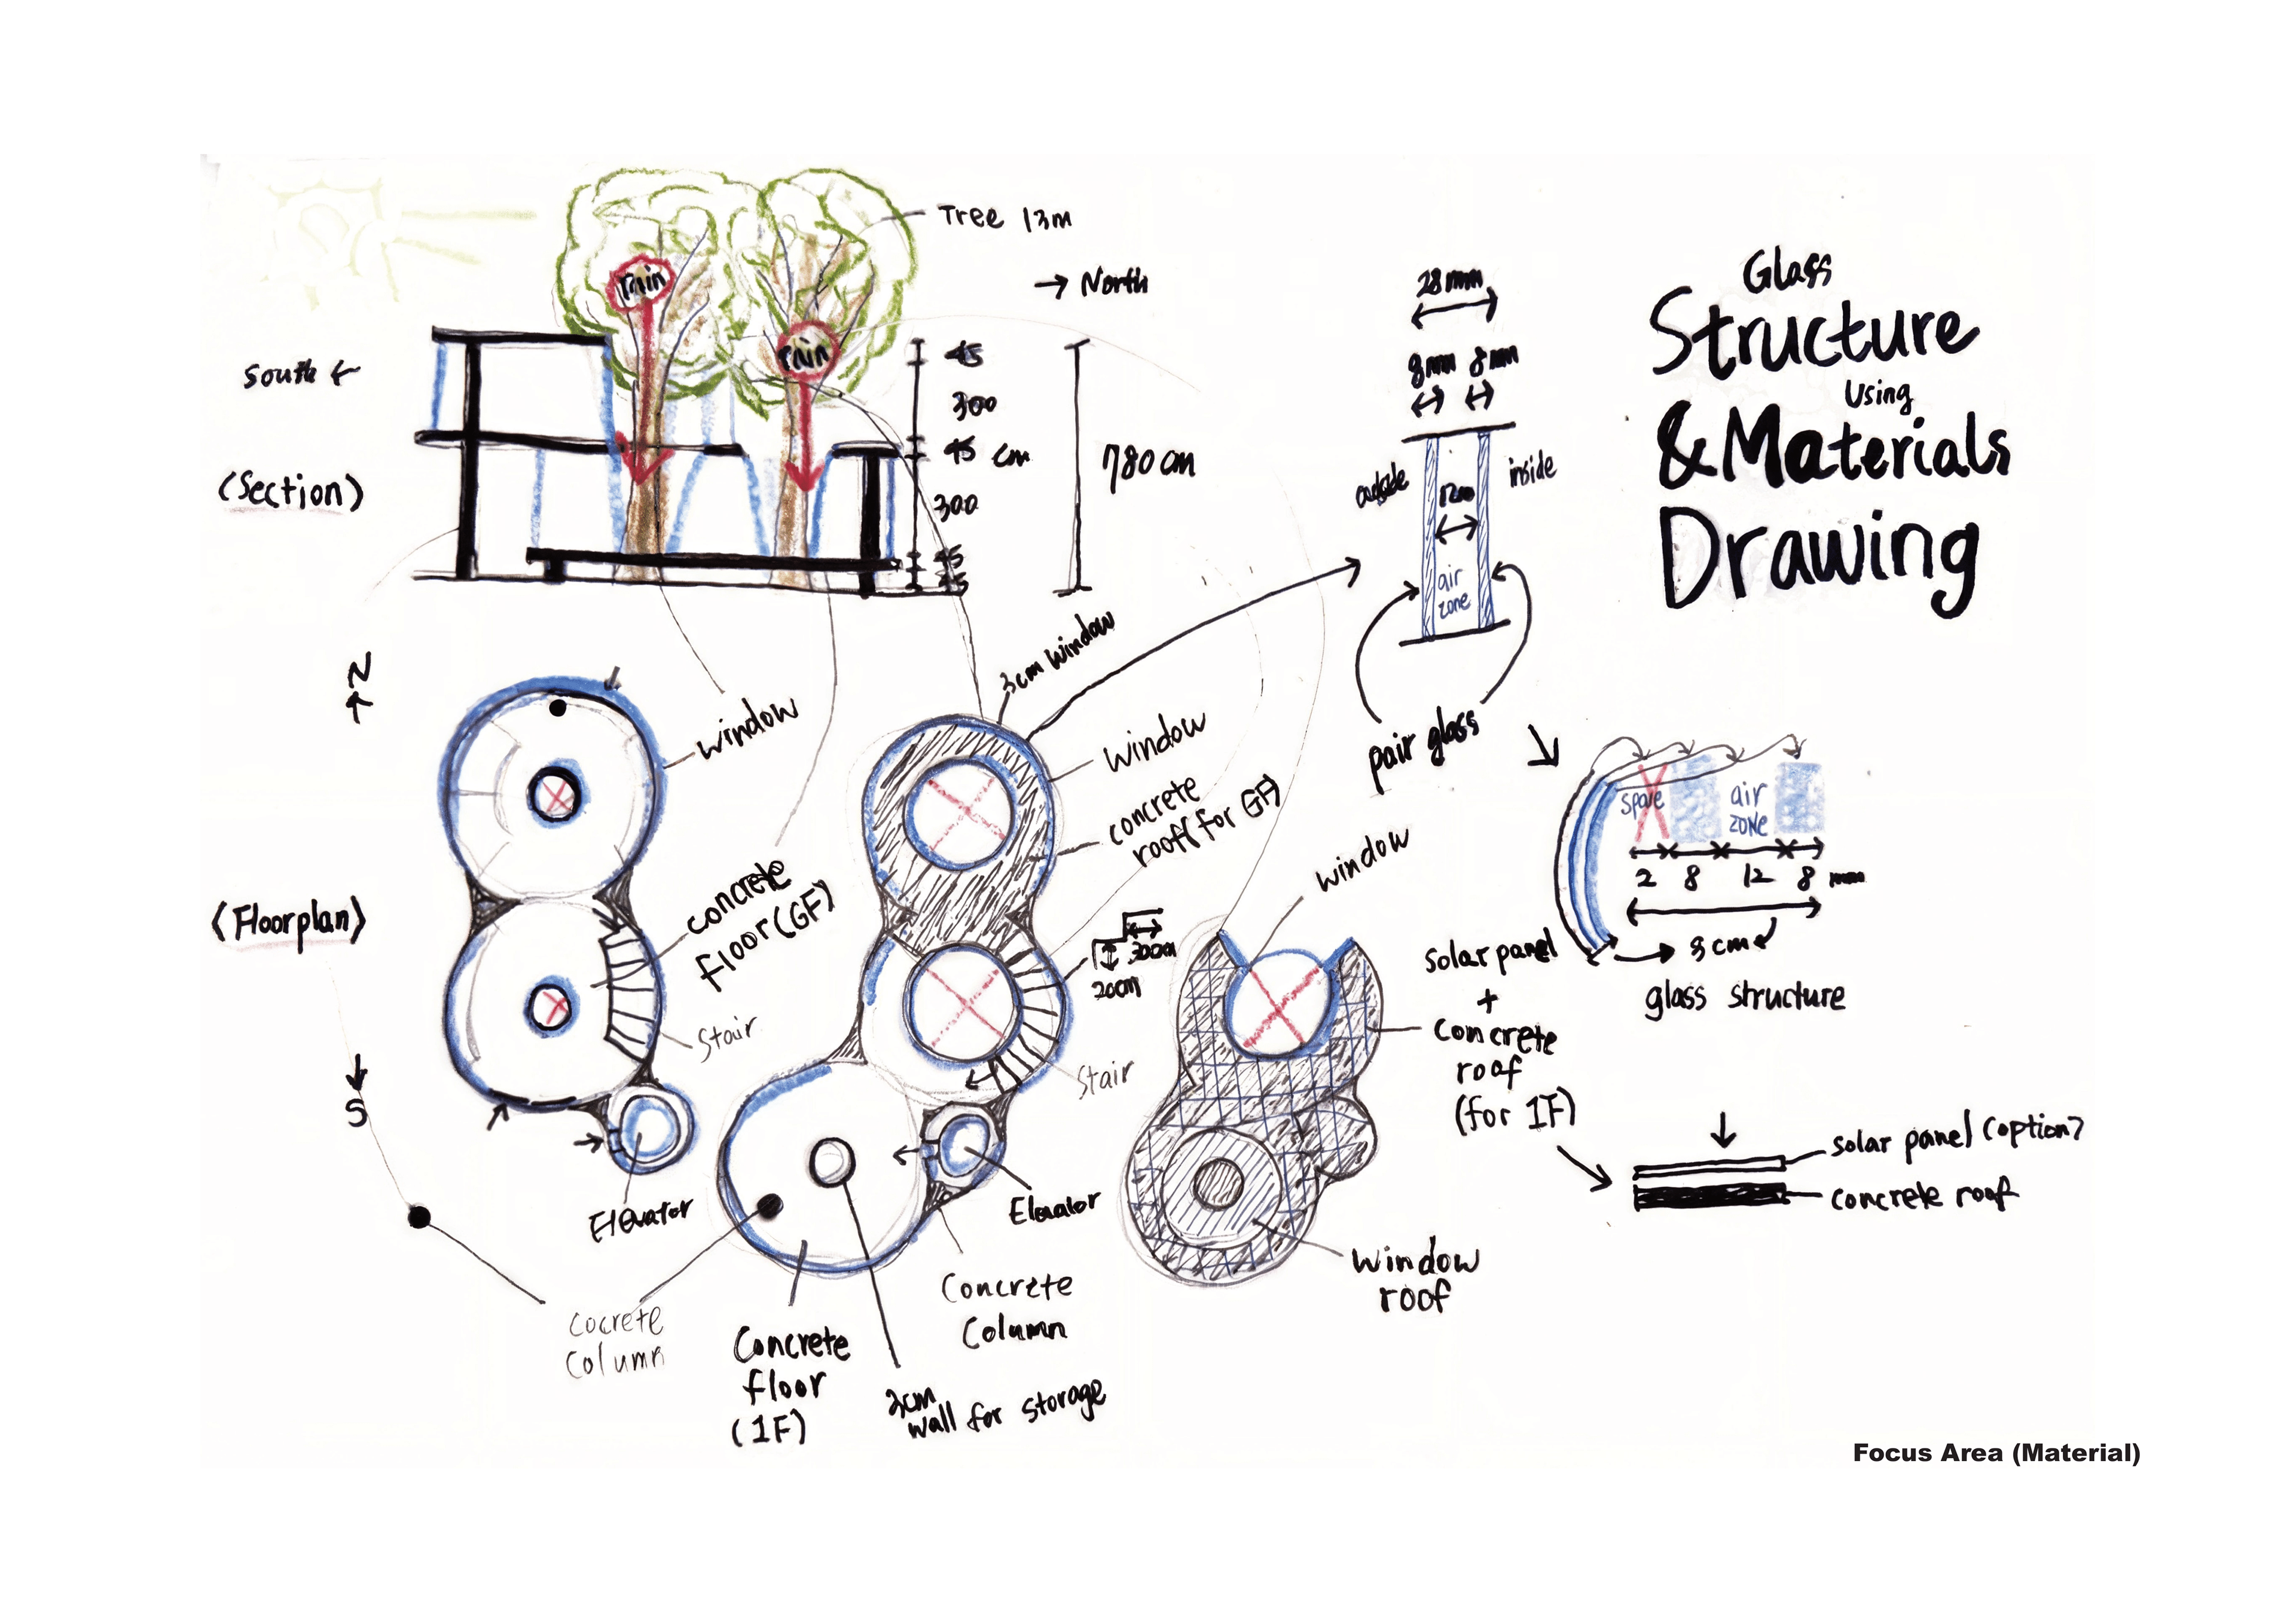 Glass
Structure
Using
& Materials
Drawing
Tree 13m
→ North
rain
rain
South ←
(Section)
45
300
45 cm
300
45
45
780 cm
28mm
8mm 8mm
outside
inside
air
zone
pair glass
N
3cm window
window
window
concrete
roof(for GF)
window
(Floorplan)
concrete
floor(GF)
Stair
S
Elevator
20cm
Stair
Elevator
solar panel
+
concrete
roof
(for 1F)
space
air
zone
2 8 12 8 mm
3cm
glass structure
solar panel (option)
concrete roof
window
roof
Cocrete
Column
Concrete
floor
(1F)
Concrete
Column
3cm
wall for storage
Focus Area (Material)